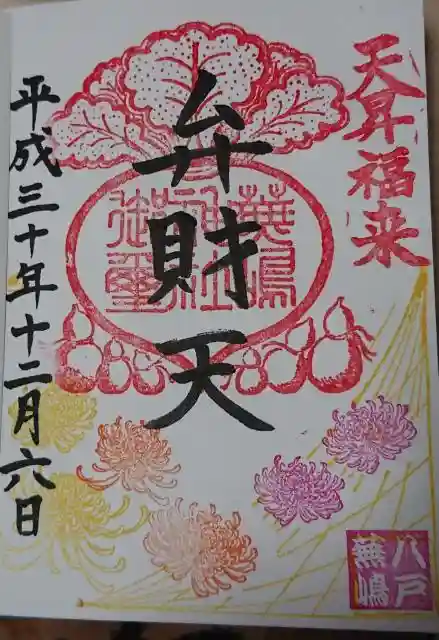 天昇福来
弁財天
蕪嶋
神社
御璽
平成三十年十二月六日
八戸
蕪嶋